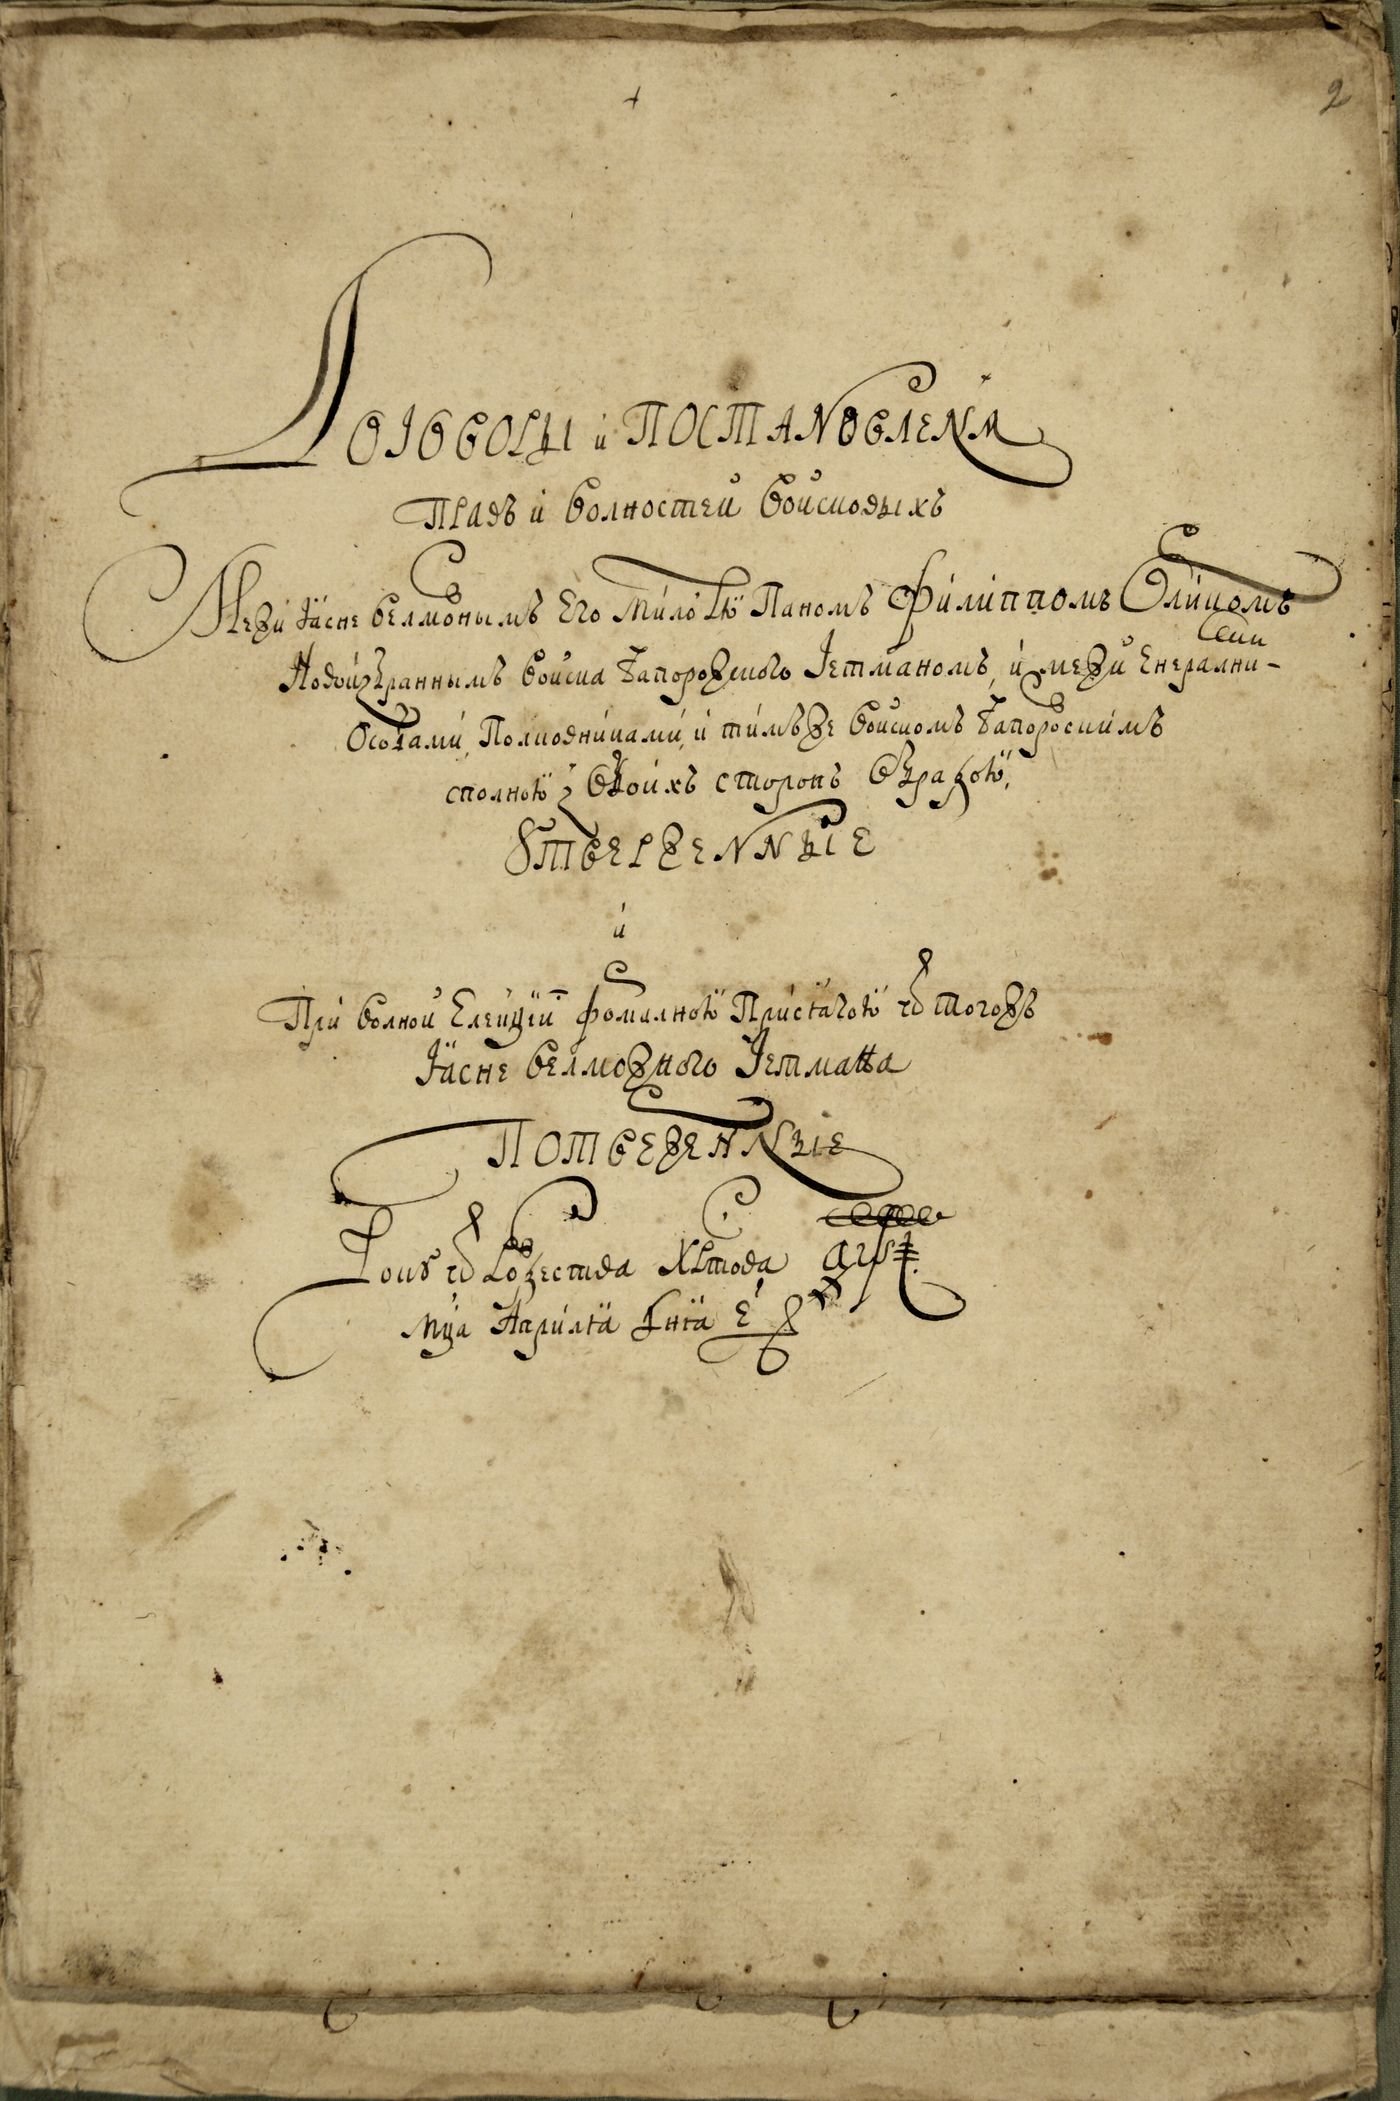 2
Договоры и Постановленѧ
Правъ и волностей войсковыхъ
Межи Ясне велможнымъ Его Мило Паномъ Филиппомъ Орликомъ
Новоизбраннымъ войска Запорожского Гетманомъ, и межи Енерални-
Особами, Полковниками, и тимъже войскомъ Запорожскимъ
сполною з обоихъ сторонъ обрадою,
Ꙋтверженные
и
При волной Елекціи формалною Присягою ѿ тогожъ
Ясне велможного Гетмана
Потвеженные
Рокꙋ ѿ Рожества Хрстова
Мца Априля Дня е